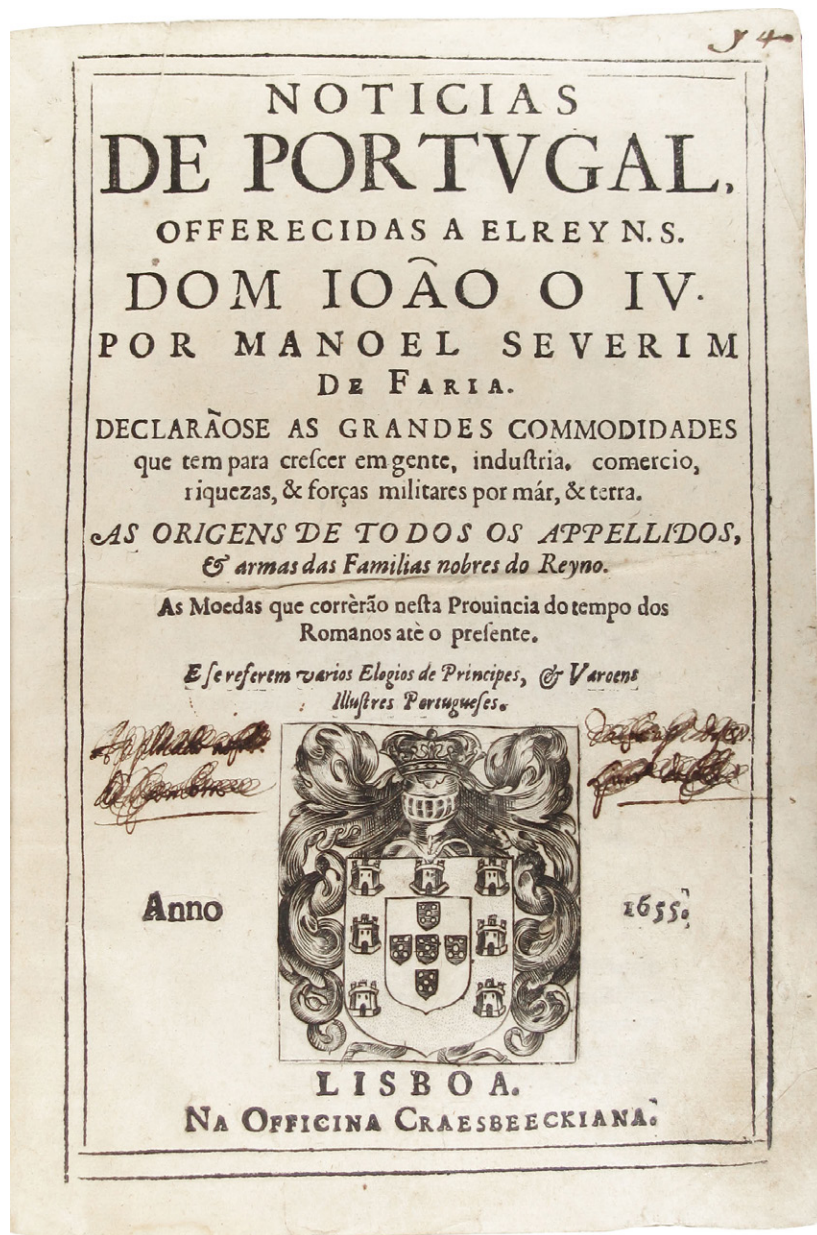 NOTICIAS
DE PORTVGAL,
OFFERECIDAS A ELREY N. S.
DOM IOÃO O IV.
POR MANOEL SEVERIM
DE FARIA.
DECLARÃOSE AS GRANDES COMMODIDADES
que tem para creſcer em gente, induſtria, comercio,
riquezas, & forças militares por már, & terra.
AS ORIGENS DE TODOS OS APPELLIDOS,
& armas das Familias nobres do Reyno.
As Moedas que corrèrão neſta Prouincia do tempo dos
Romanos atè o preſente.
E ſe referem varios Elogios de Principes, & Varoens
Illuſtres Portugueſes.
Anno 1655.
LISBOA.
NA OFFICINA CRAESBEECKIANA.